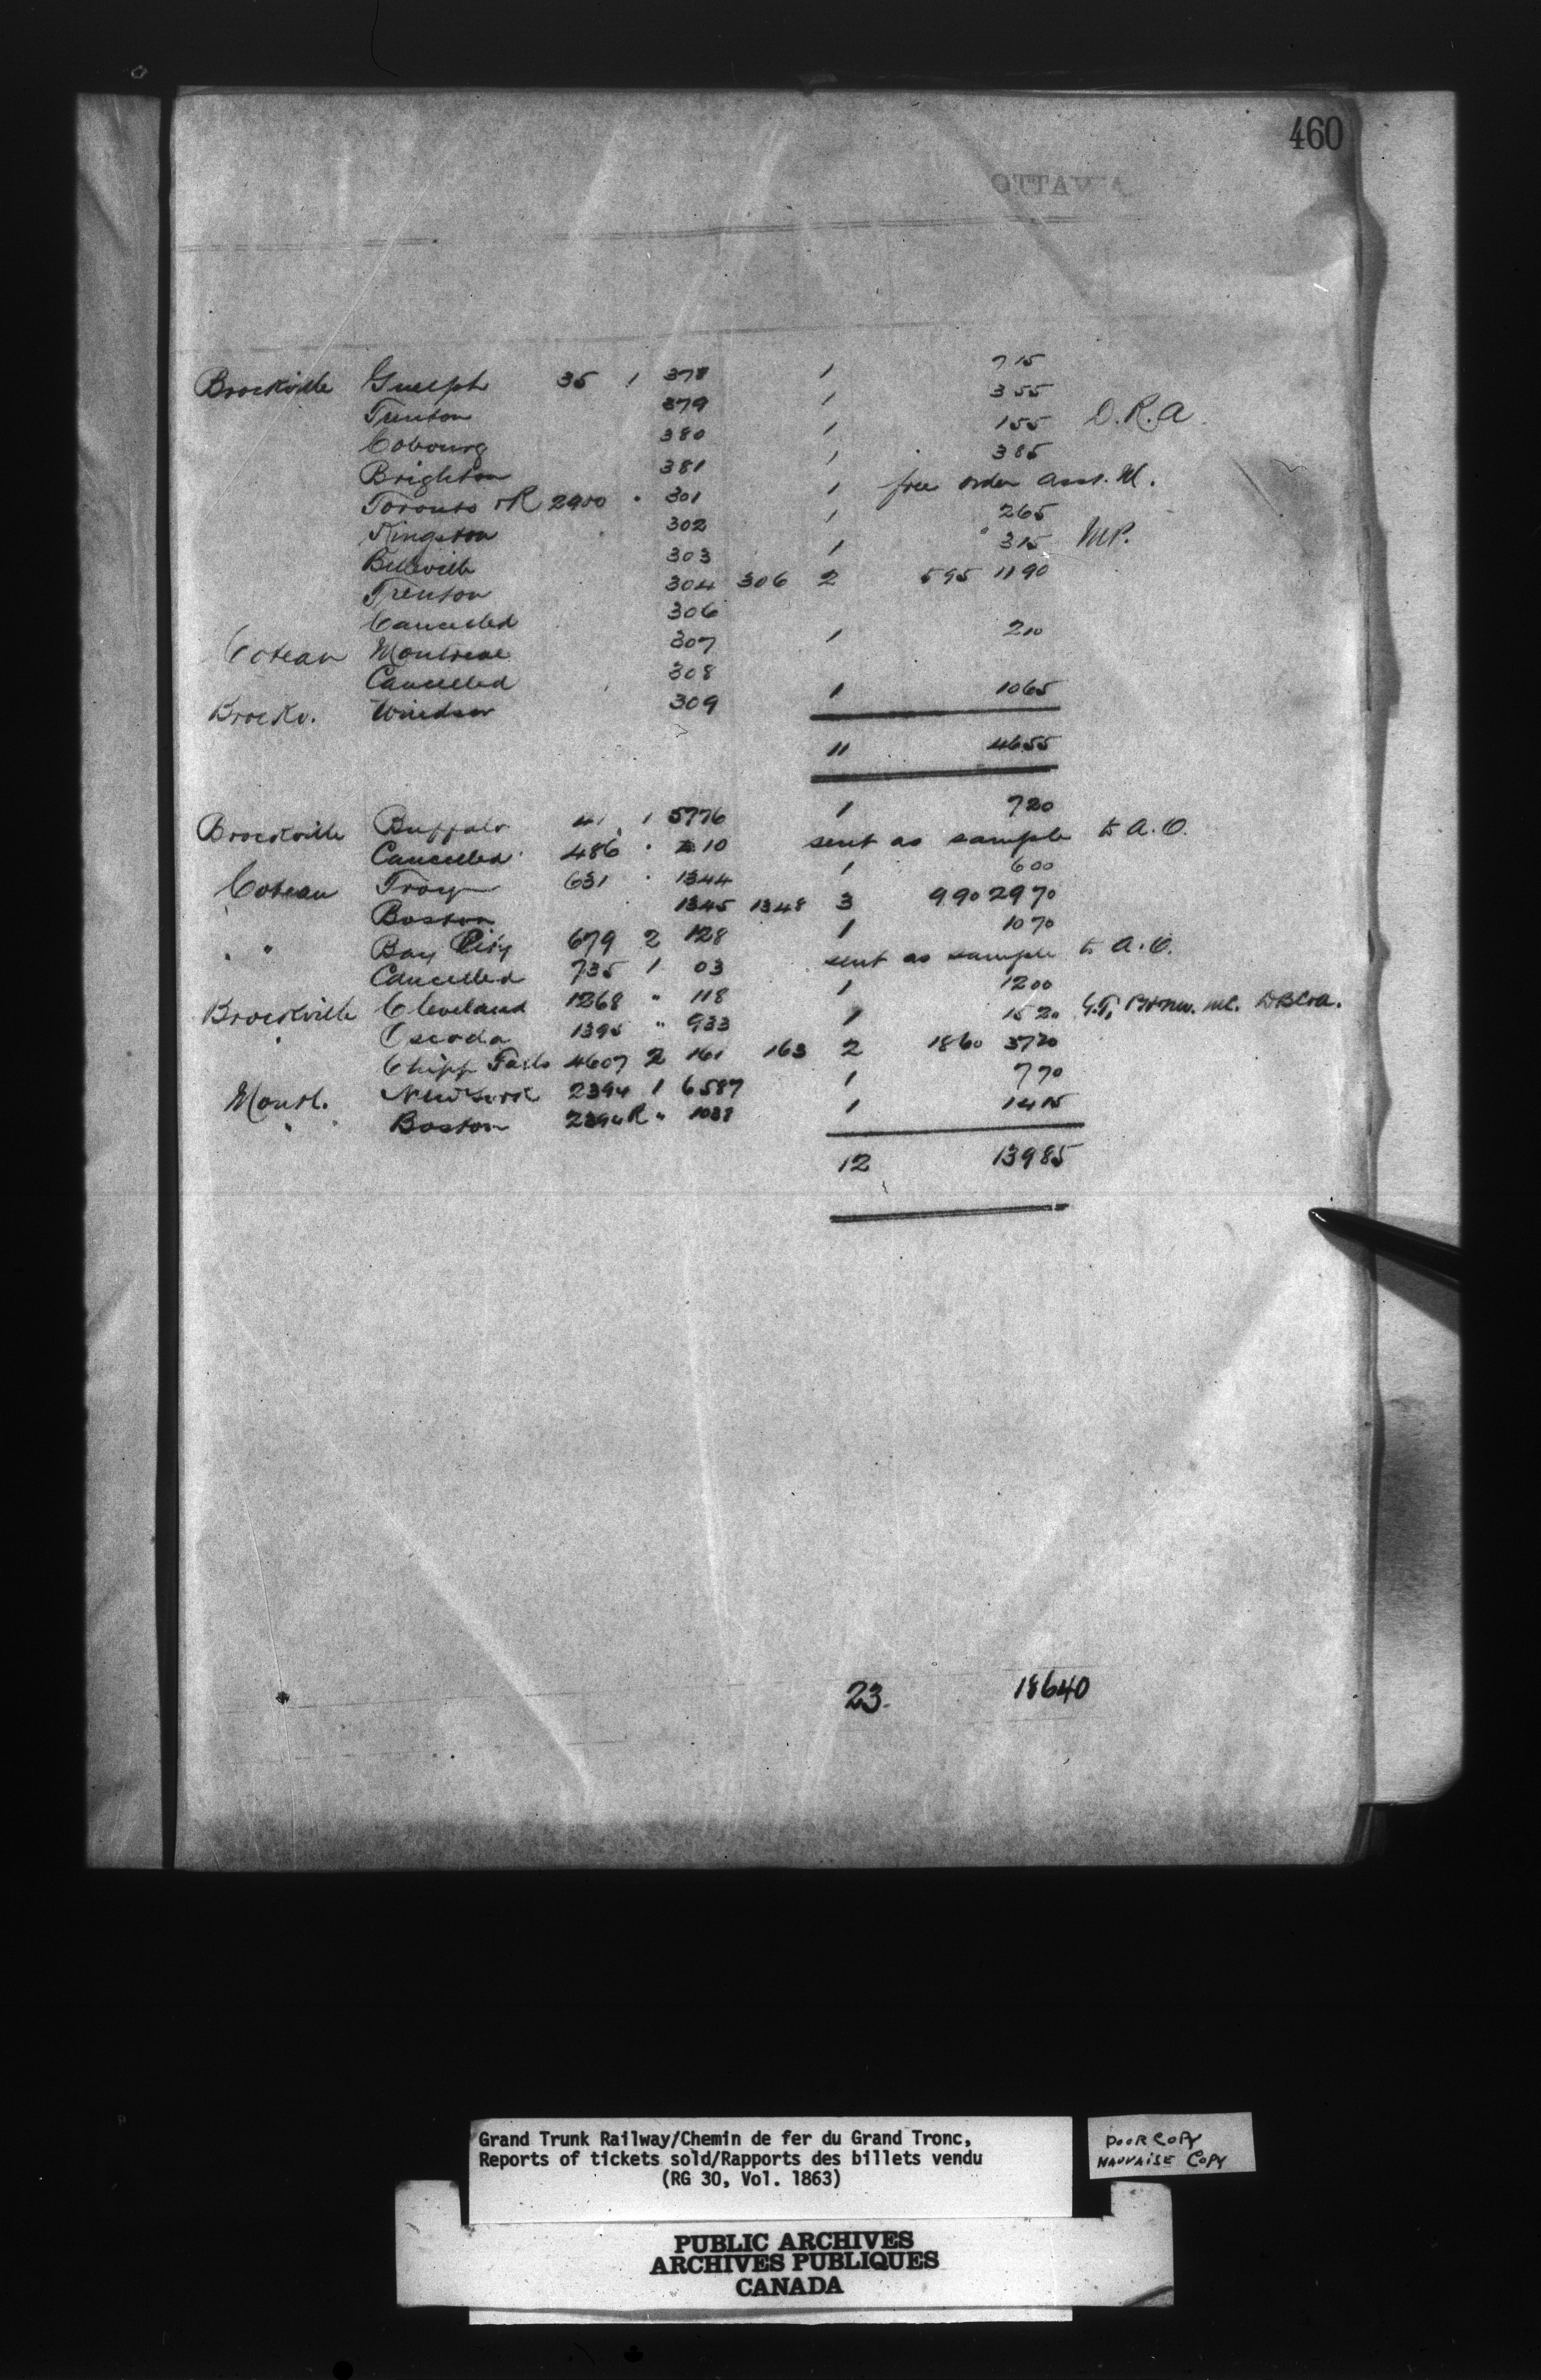 460
OTTAWA
Brockville Guelph 35 1 378 1 715
Trenton 379 1 355
Cobourg 380 1 155 D.R.A.
Brighton 381 1 385
Toronto R 2900 " 301 1 free order Asst. M.
Kingston 302 1 265
Belleville 303 1 315 MP.
Trenton 304 306 2 595 1190
Cancelled 306
Coteau Montreal 307 1 210
Cancelled 308
Brockv. Windsor 309 1 1065
11 4655
Brockville Buffalo 41 1 5776 1 720
Cancelled 486 " 10 sent as sample to A.O.
Coteau Troy 631 " 1344 1 600
Boston 1345 1348 3 990 2970
" " Bay City 679 2 128 1 1070
Cancelled 735 1 03 sent as sample to A.O.
Brockville Cleveland 1268 " 118 1 1200
" Oscoda 1395 " 933 1 1520 G.T.
Chipp Falls 4607 2 161 163 2 1860 3720
Montl. New York 2394 1 6587 1 770
" Boston 2394R " 1038 1 1415
12 13985
23. 18640
Grand Trunk Railway/Chemin de fer du Grand Tronc,
Reports of tickets sold/Rapports des billets vendu
(RG 30, Vol. 1863)
POOR COPY
MAUVAISE COPY
PUBLIC ARCHIVES
ARCHIVES PUBLIQUES
CANADA